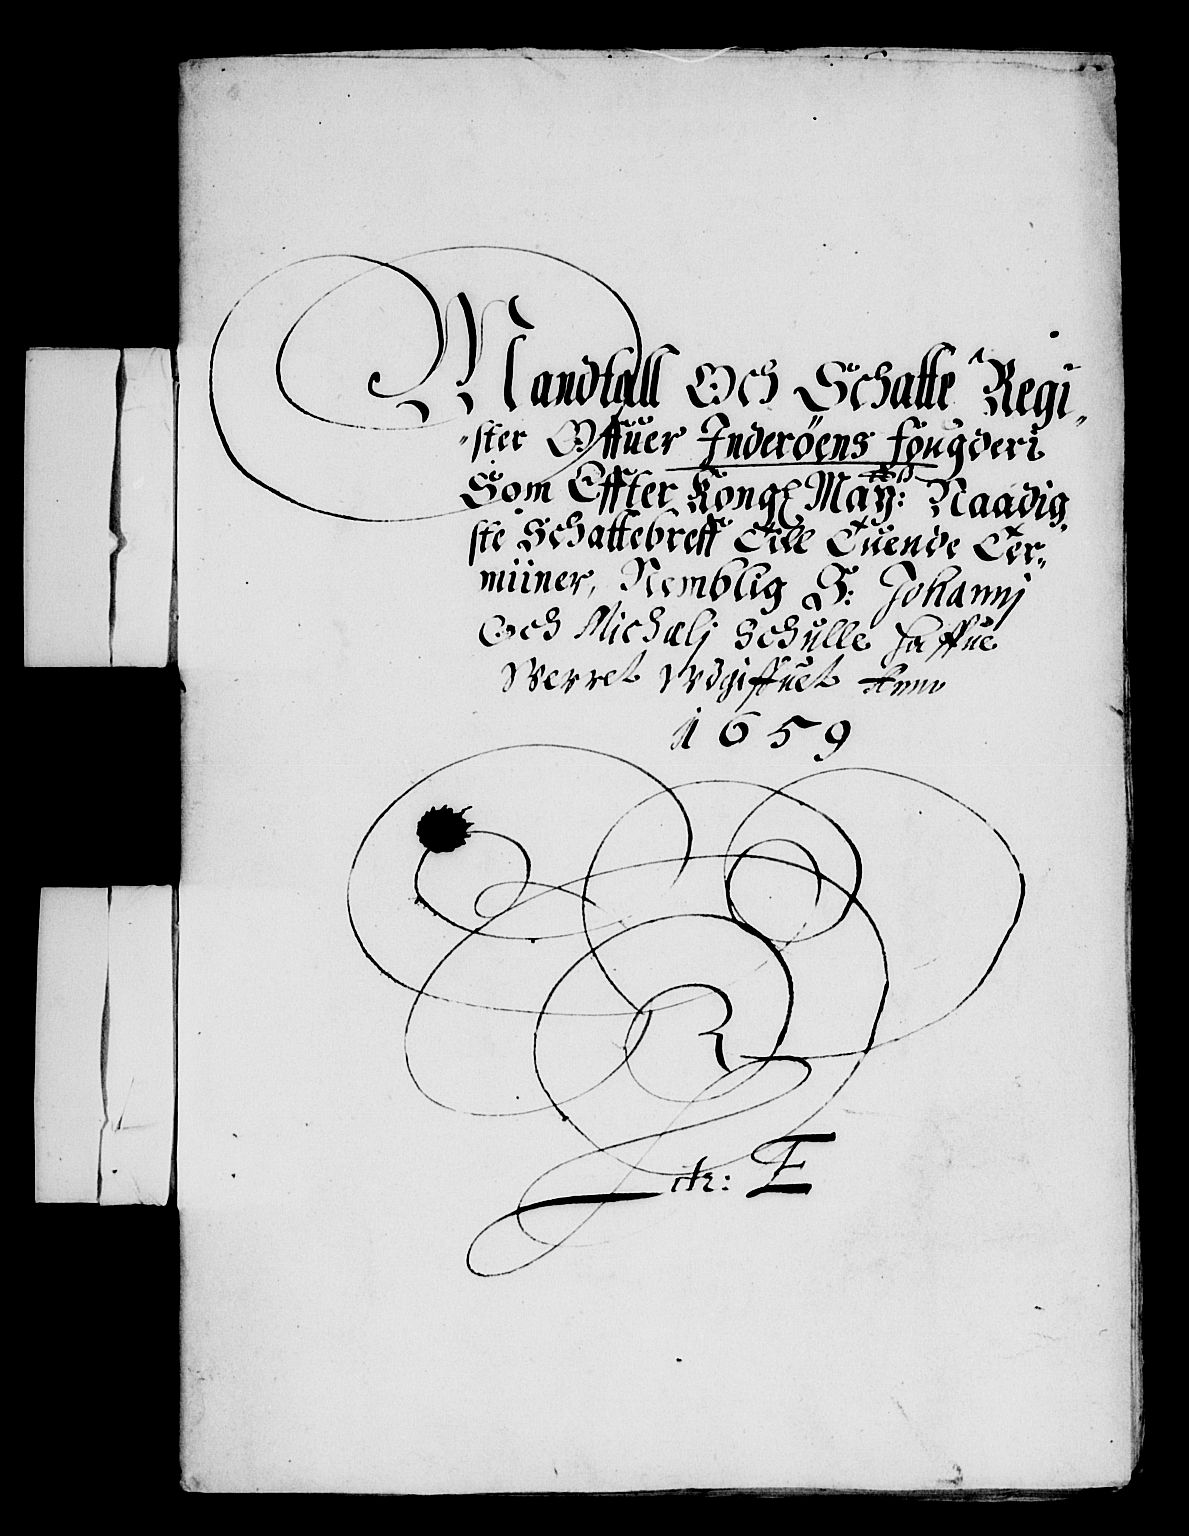 Mandtall Och Schatte Regi-
-ster Offuer Inderöens fougderi
Som Effter Kongl May:tts Naadig
ste Schattebreff Till Tuende Ter-
miiner, Nemblig S: Johannj
Och Michælj Schulle haffue
Werret Wdgiffuet Anno
1659
Litr: E